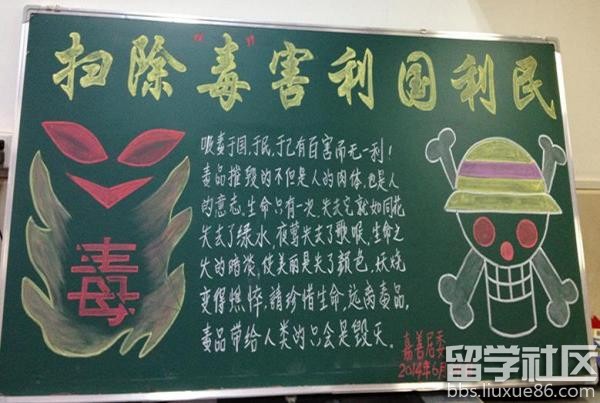 扫除“毒”害利国利民
吸毒于国，于民，于己有百害而无一利！
毒品摧毁的不但是人的肉体，也是人
的意志，生命只有一次，失去它就如同花
失去了绿水，夜莺失去了歌喉，生命之
火的暗淡，使美丽失了颜色，妖娆
变得憔悴，请珍惜生命，远离毒品，
毒品带给人类的只会是毁灭。
毒
嘉善居委
2014年6月
留学社区
bbs.liuxue86.com